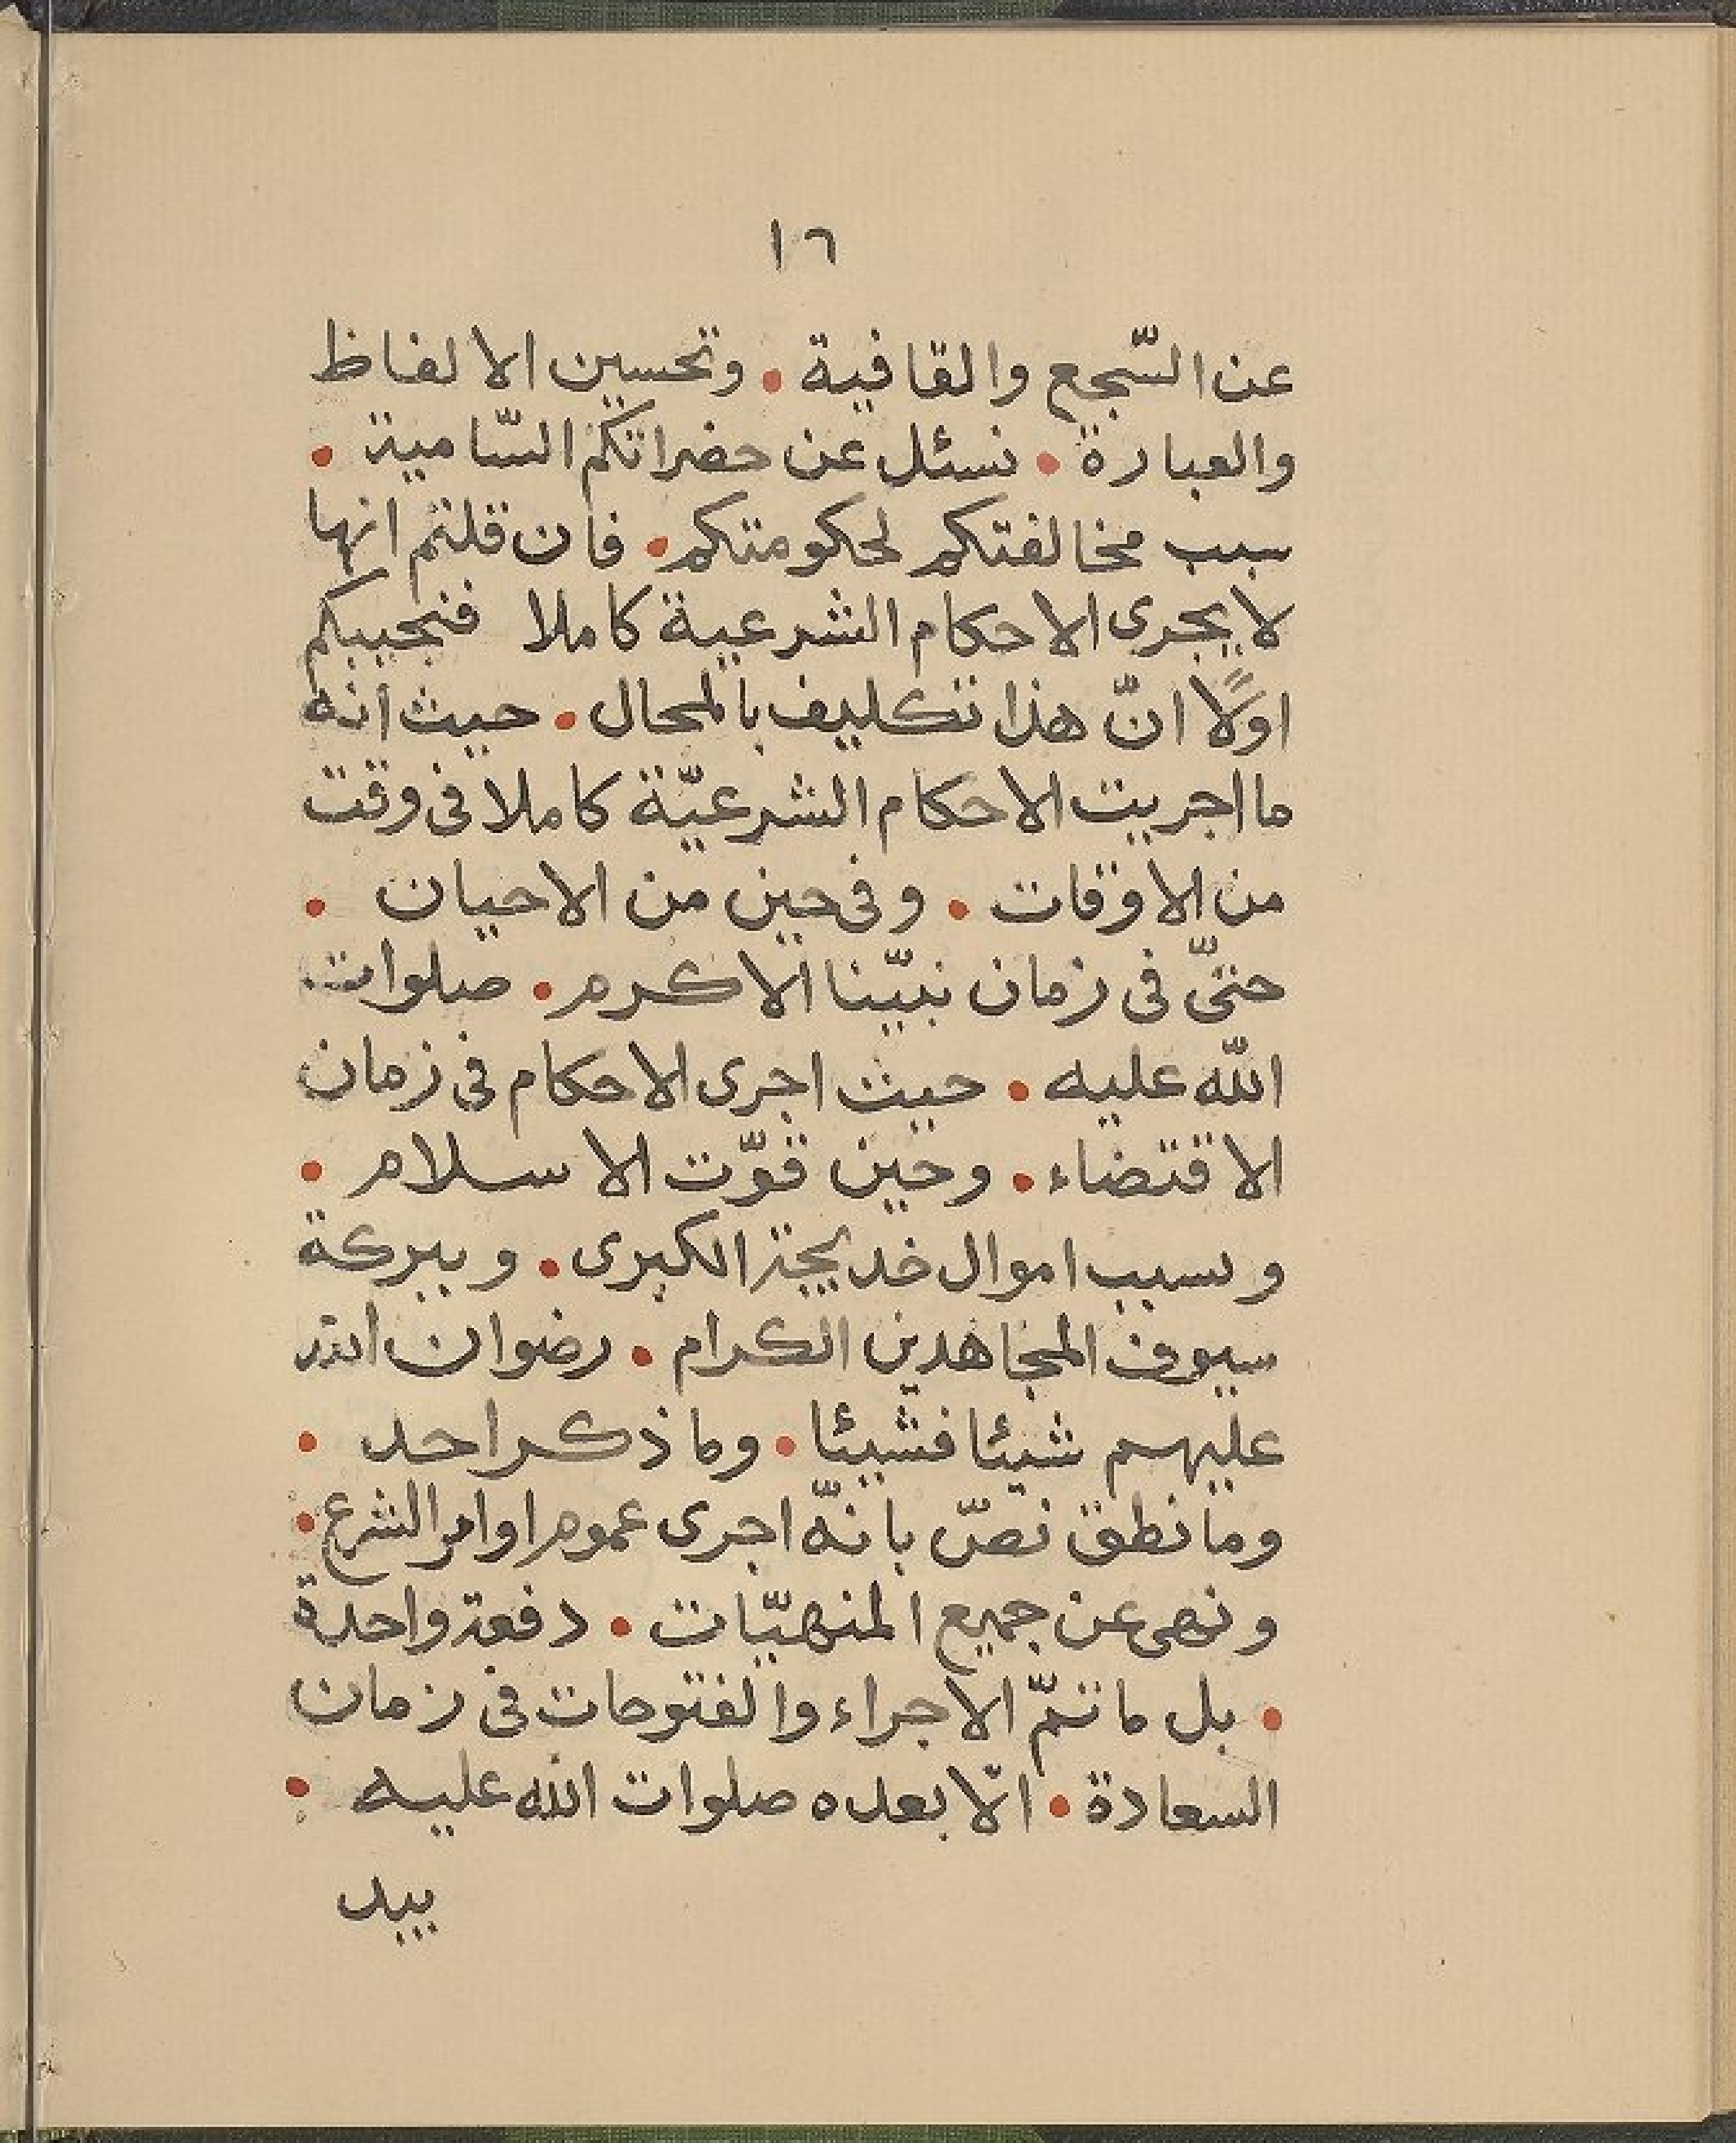 ١٦
عن السّجع والقافية • وتحسين الالفاظ
والعبارة • نسئل عن حضراتكم السّامية •
سبب مخالفتكم لحكومتكم • فان قلتم انها
لا يجرى الاحكام الشرعية كاملا فنجيبكم
اولًا انّ هذا تكليف بالمحال • حيث انه
ما اجريت الاحكام الشرعيّة كاملا فى وقت
من الاوقات • وفى حين من الاحيان •
حتىّ فى زمان نبيّنا الاكرم • صلوات
الله عليه • حيث اجرى الاحكام فى زمان
الاقتضاء • وحين قوّت الاسلام •
وبسبب اموال خديجة الكبرى • وببركة
سيوف المجاهدين الكرام • رضوان الله
عليهم شيئا فشيئا • وما ذكر احد •
وما نطق نصّ بانّه اجرى عموم اوامر الشرع •
ونهى عن جميع المنهيّات • دفعة واحدة
• بل ما تمّ الاجراء والفتوحات فى زمان
السعادة • الّا بعده صلوات الله عليه •
بيد